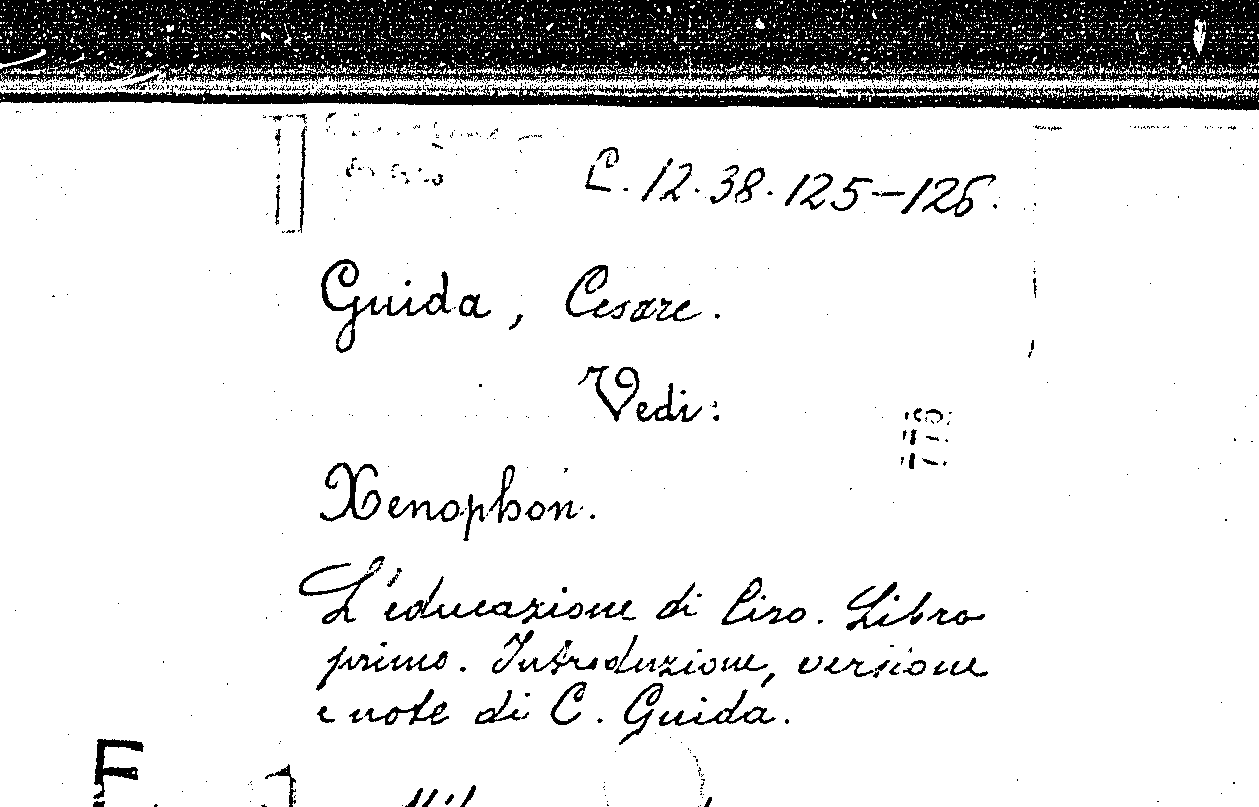 C. 12. 38. 125-126.
Guida, Cesare.
Vedi:
Xenophon.
L'educazione di Ciro. Libro
primo. Introduzione, versione
e note di C. Guida.